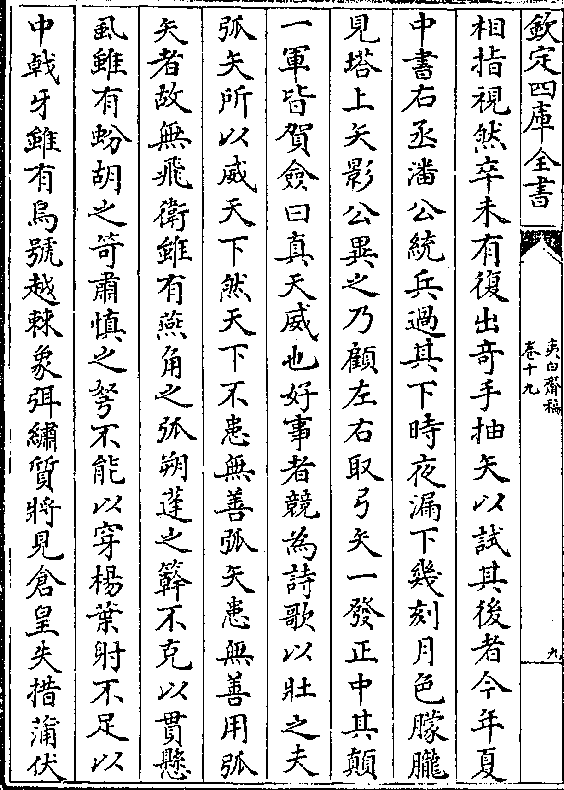 欽定四庫全書
夷白齋稿
卷十九
九
相指視然卒未有復出竒手抽矢以試其後者今年夏
中書右丞潘公統兵過其下時夜漏下幾刻月色朦朧
見塔上矢影公異之乃顧左右取弓矢一發正中其顛
一軍皆賀僉曰真天威也好事者競為詩歌以壯之夫
弧矢所以威天下然天下不患無善弧矢患無善用弧
矢者故無飛衛雖有燕角之弧朔蓬之簳不克以貫懸
虱雖有蚡胡之笴肅慎之弩不能以穿楊葉射不足以
中戟牙雖有烏號越棘象弭繡質將見倉皇失措蒲伏